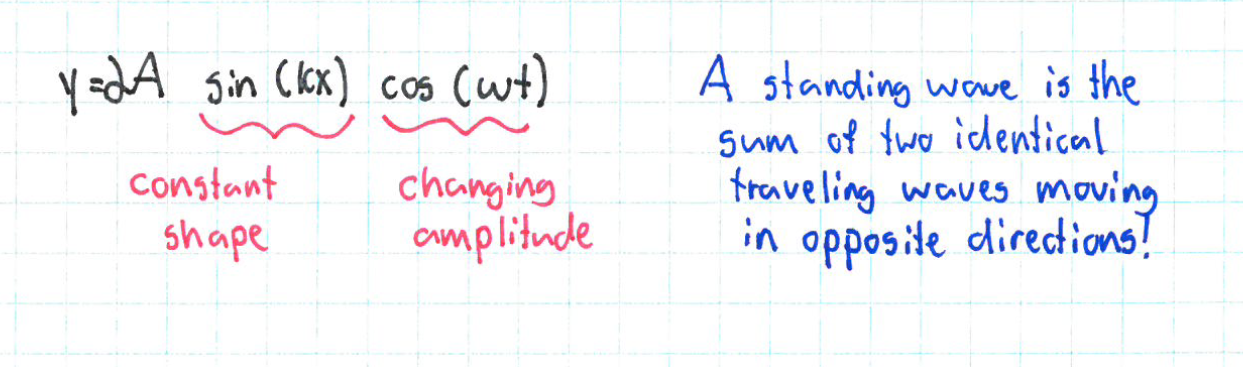 y=2A sin (kx) cos (ωt)
constant
shape
changing
amplitude
A standing wave is the
sum of two identical
traveling waves moving
in opposite directions!